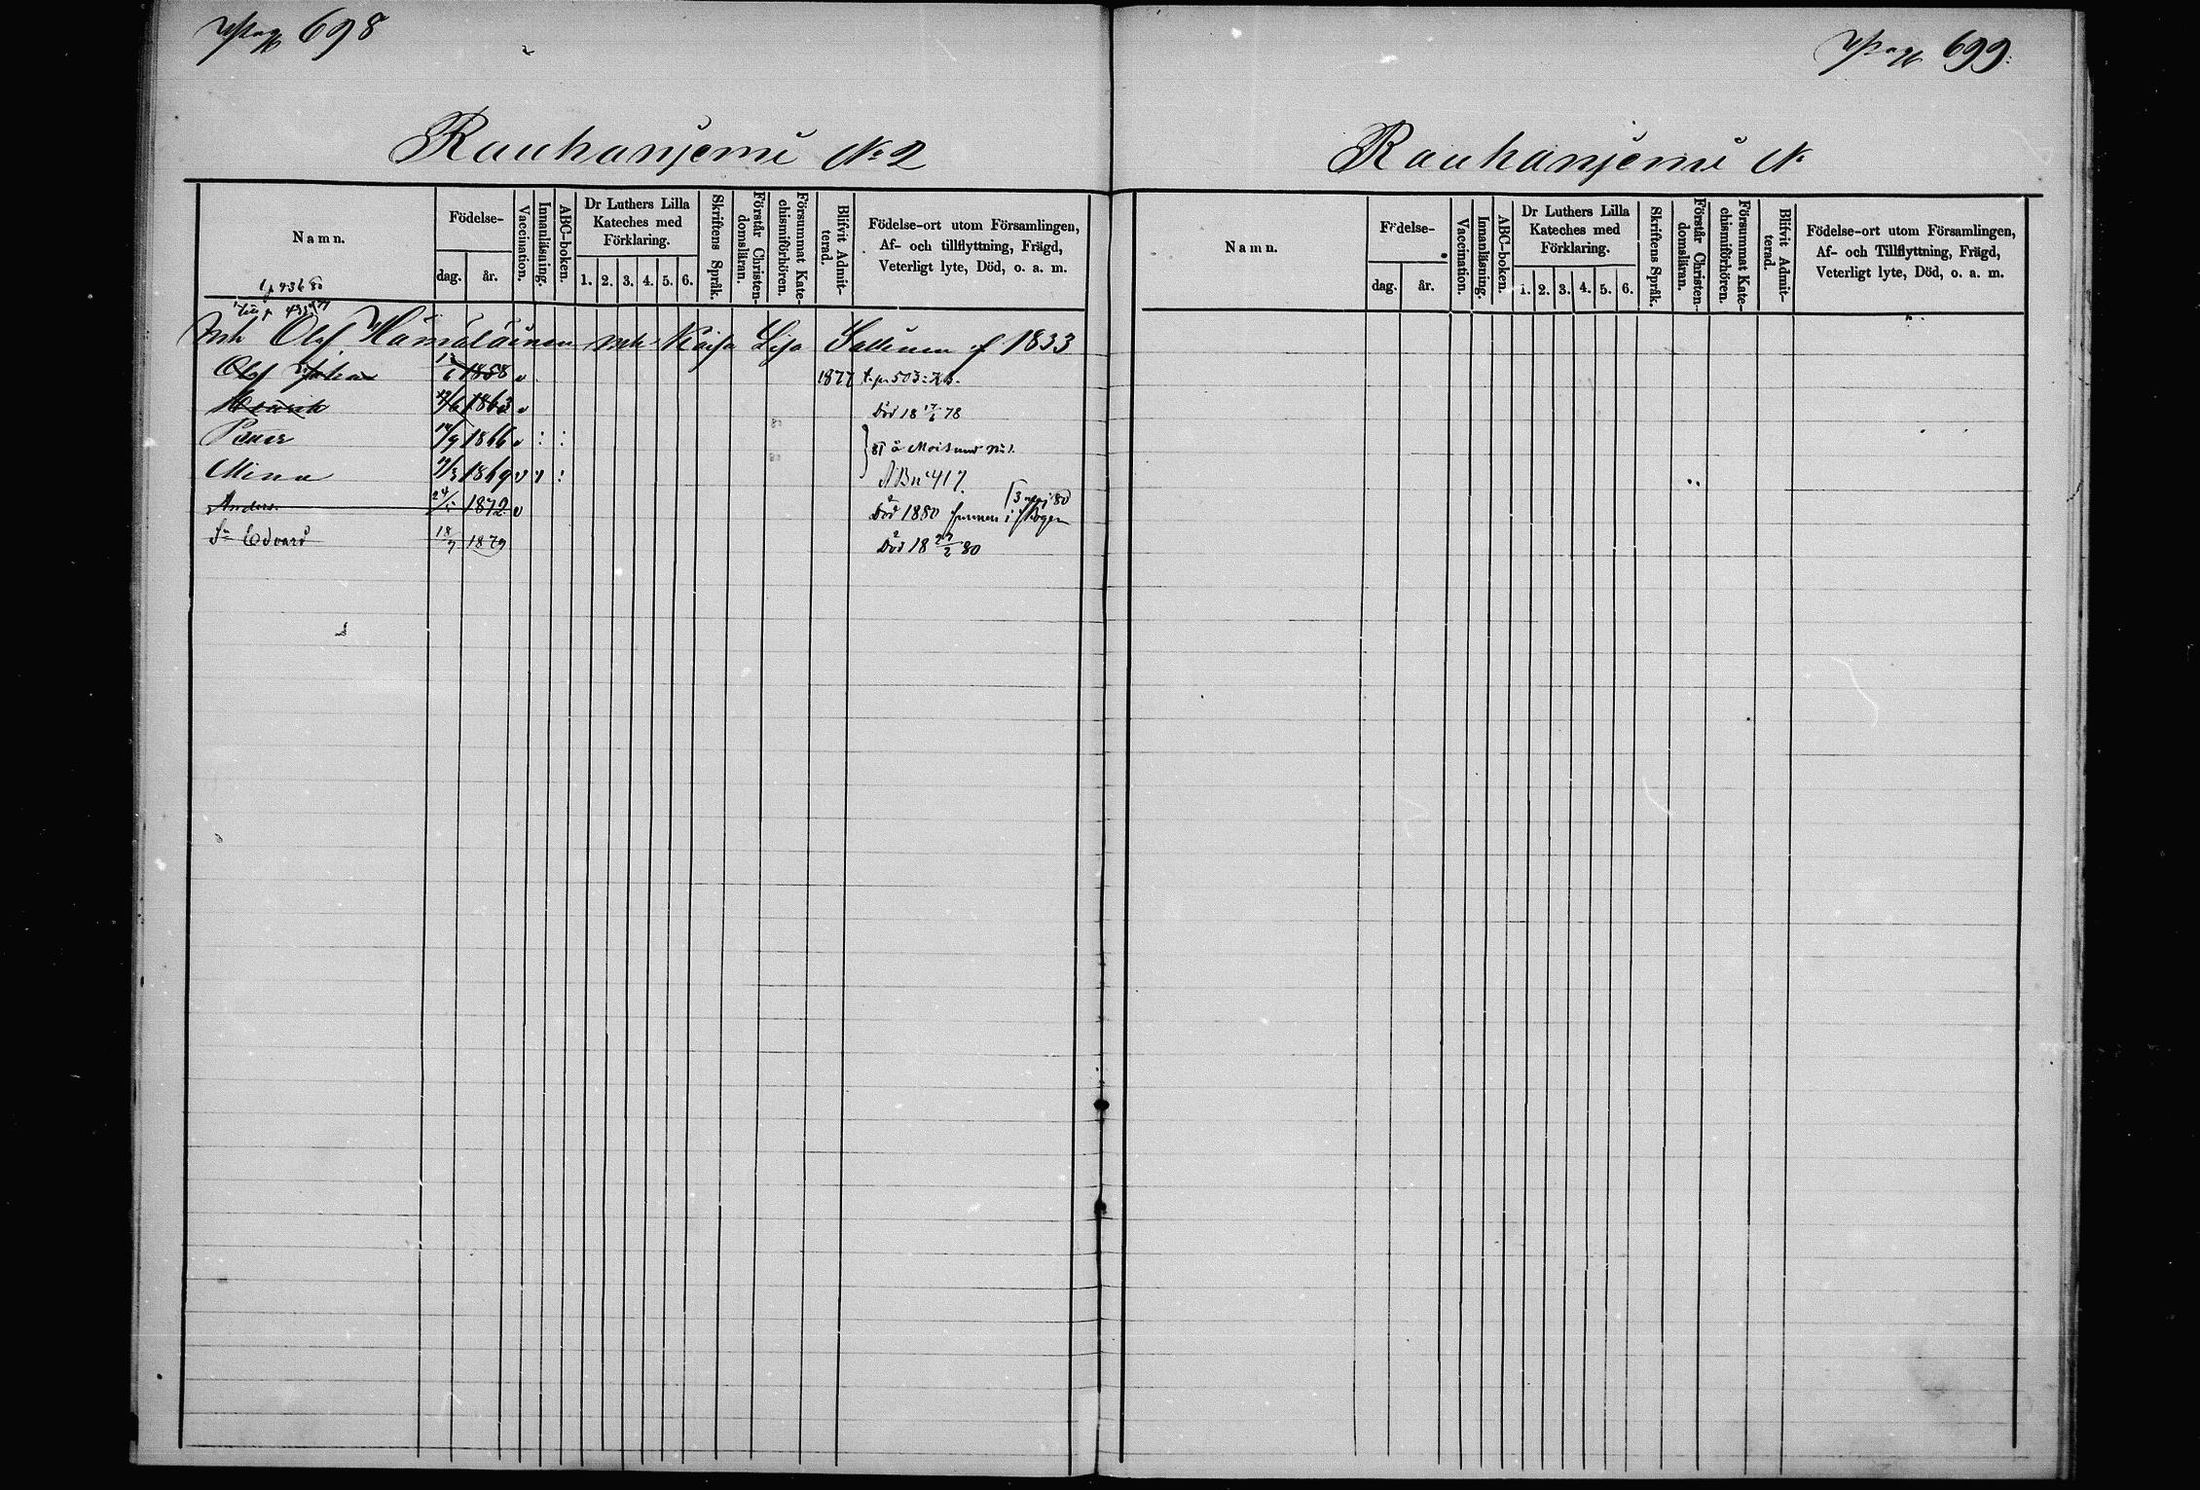 Pag 698
Rauhaniemi No 2
Namn.
Födelse-
dag. år.
Vaccination.
Innanläsning.
ABC-boken.
Dr Luthers Lilla
Kateches med
Förklaring.
1. 2. 3. 4. 5. 6.
Skriftens Språk.
Förstår Christen-
domsläran.
Försummat Kate-
chismiförhören.
Blifvit Admit-
terad.
Födelse-ort utom Församlingen,
Af- och tillflyttning, Frägd,
Veterligt lyte, Död, o. a. m.
Olof Hämäläinen Kaisa Lisa Sallinen f 1833
Olof Johan 1858 v 1877 t. p. 503:
1863 v Död 18 78
1866 v : :
Mina 1869 v v :
417.
Anders 1872 v Död 1880 funnen i skogen
Sn Edvard 18/7 1879 Död 18 27/2 80
Pag 699
Rauhaniemi No
Namn.
Födelse-
dag. år.
Vaccination.
Innanläsning.
ABC-boken.
Dr Luthers Lilla
Kateches med
Förklaring.
1. 2. 3. 4. 5. 6.
Skriftens Språk.
Förstår Christen-
domsläran.
Försummat Kate-
chismiförhören.
Blifvit Admit-
terad.
Födelse-ort utom Församlingen,
Af- och Tillflyttning, Frägd,
Veterligt lyte, Död, o. a. m.